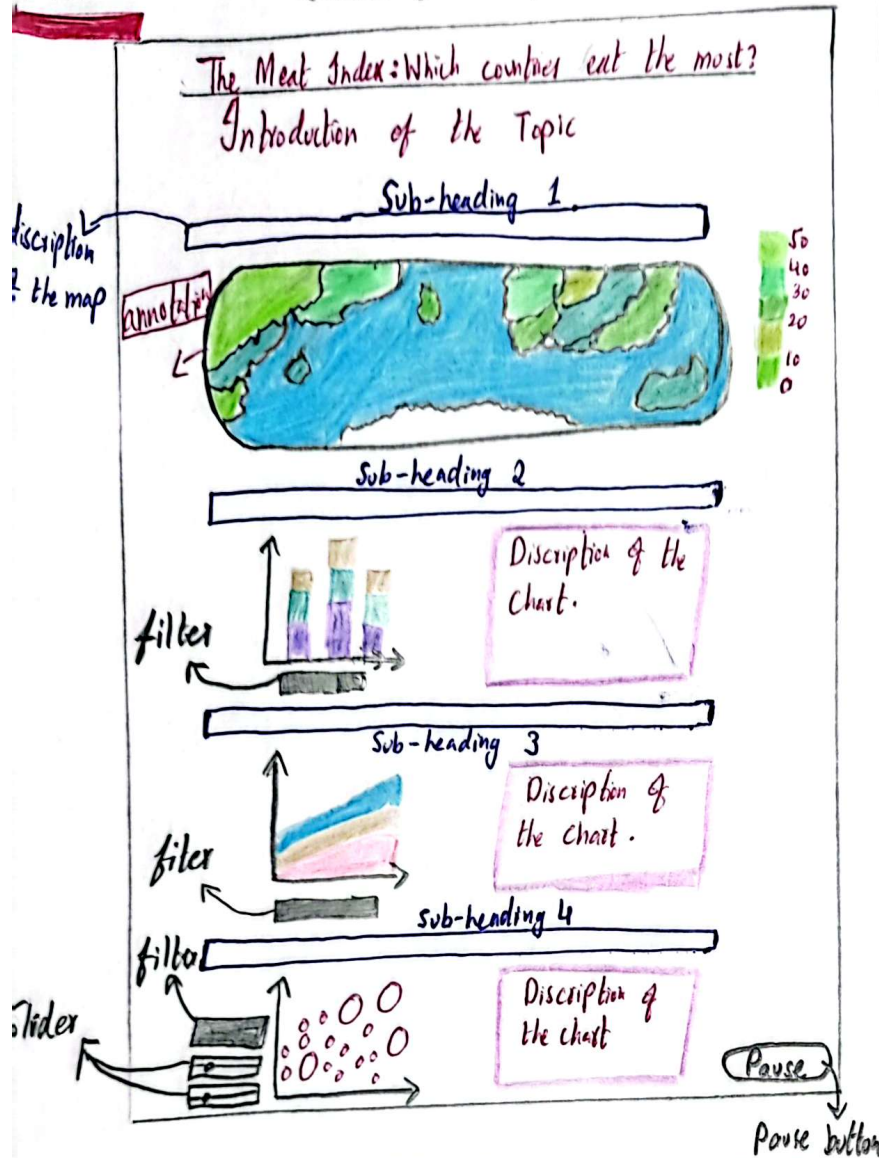 The Meat Index: Which countries eat the most?
Introduction of the Topic
Sub-heading 1
discription
the map
annotation
50
40
30
20
10
0
Sub-heading 2
Discription of the
Chart.
filter
Sub-heading 3
Discription of
the Chart.
filer
Sub-heading 4
filter
Discription of
the chart
Slider
Pause
Pause button